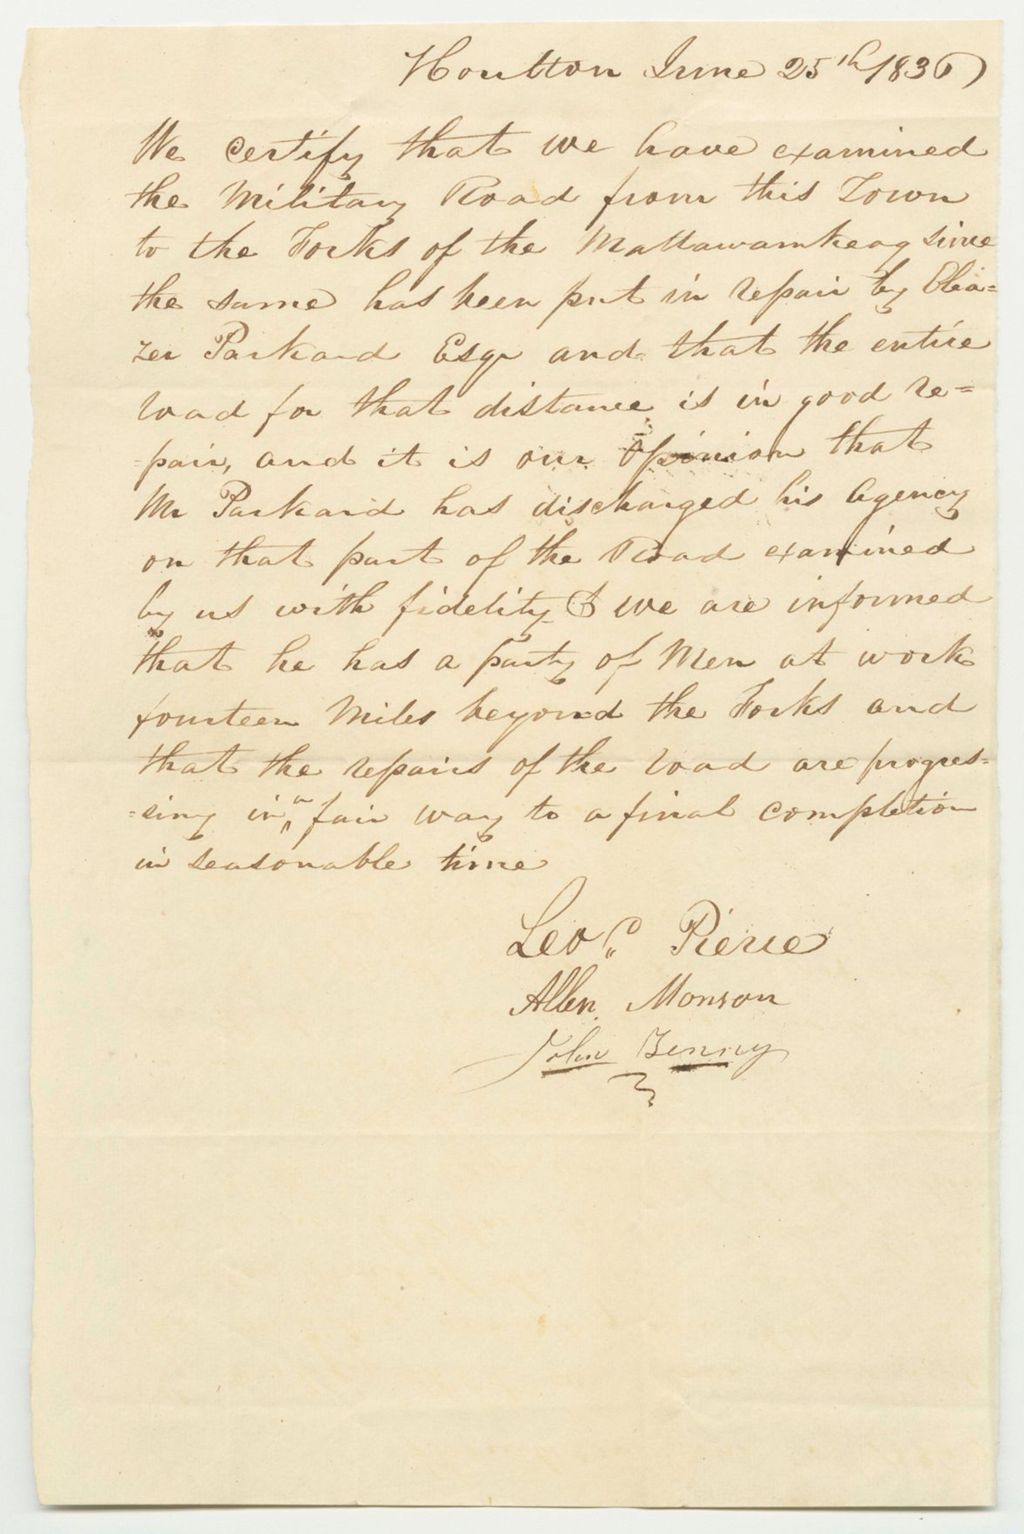 Houlton June 25th 1836
We certify that we have examined
the Military Road from this Town
to the Forks of the Mattawamkeag since
the same has been put in repair by Elea=
zer Packard Esqr and that the entire
road for that distance is in good re=
=pair, and it is our opinion that
Mr Packard has discharged his Agency
on that part of the Road examined
by us with fidelity & we are informed
that he has a party of Men at work
fourteen Miles beyond the Forks and
that the repairs of the road are progres=
=sing in a fair way to a final completion
in seasonable time
Leod. Pierce
Allen Monson
John